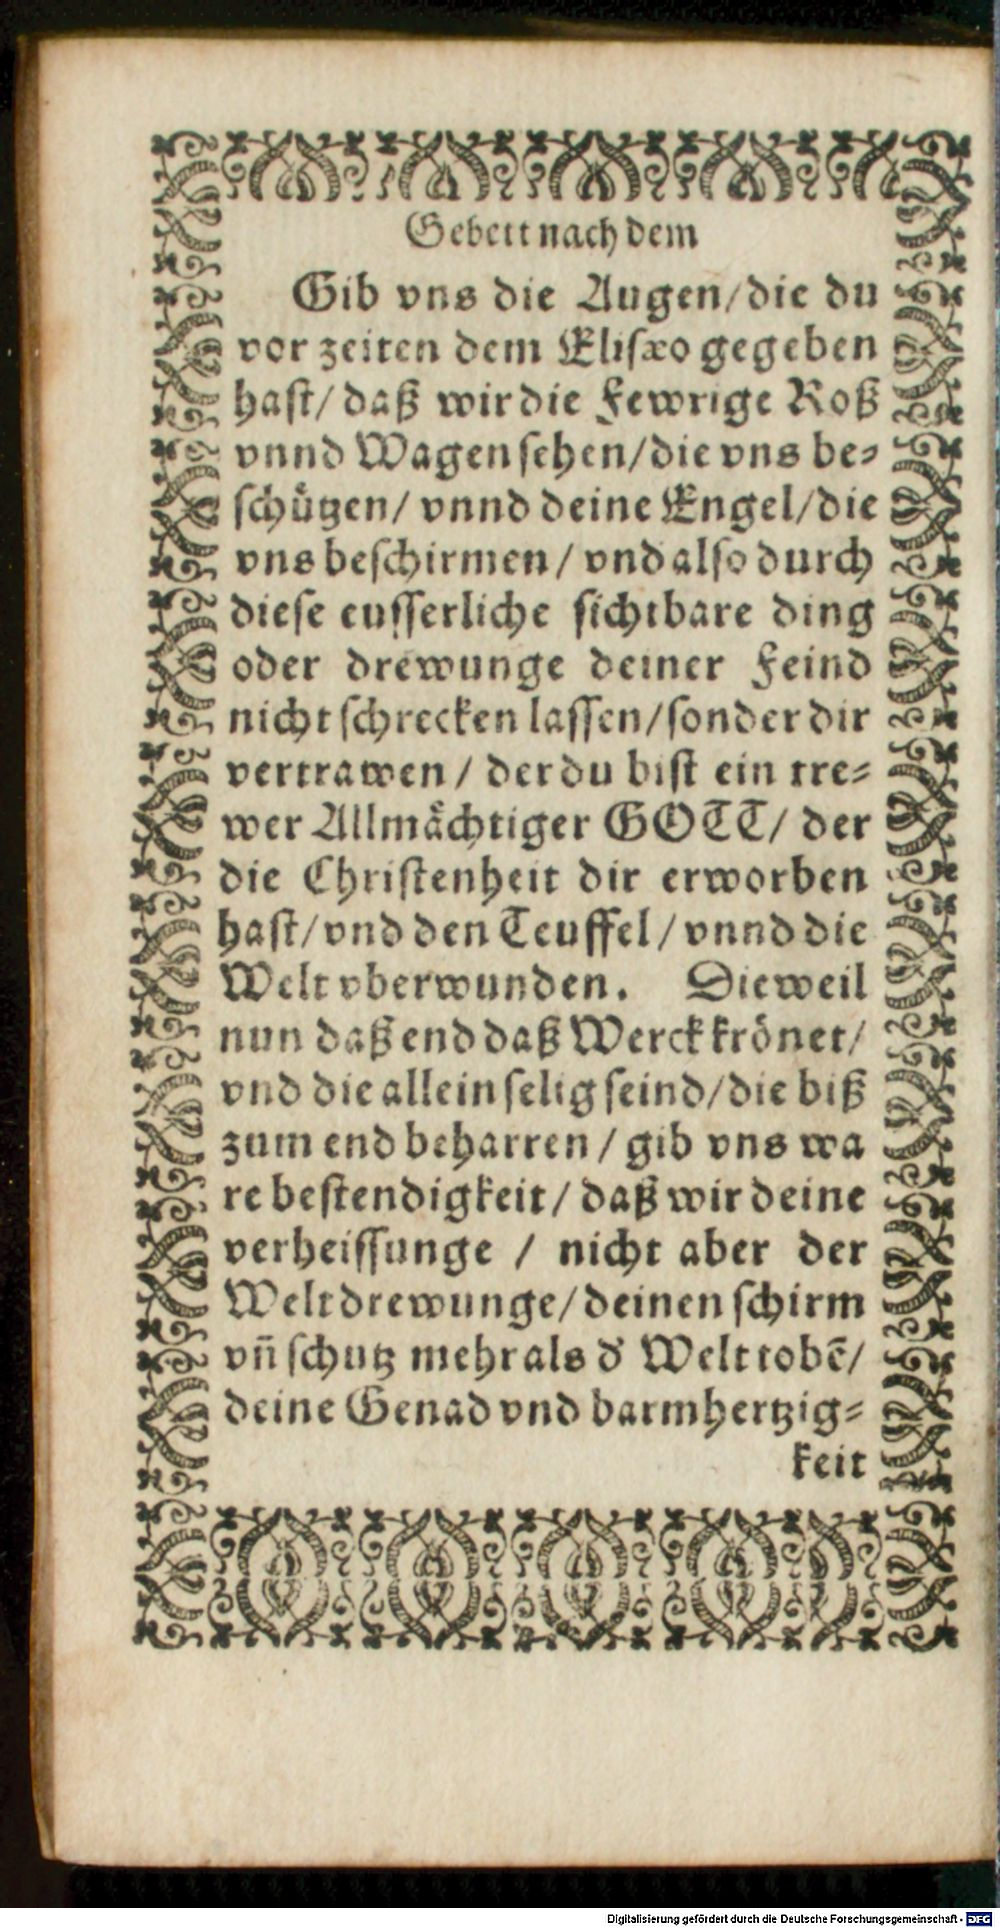 Gebett nach dem
Gib vns die Augen/die du
vor zeiten dem Elisæo gegeben
hast/ daß wir die Fewrige Roß
vnnd Wagen sehen/die vns be⸗
schützen/ vnnd deine Engel/die
vns beschirmen/ vnd also durch
diese eusserliche sichtbare ding
oder drewunge deiner Feind
nicht schrecken lassen/sonder dir
vertrawen/ der du bist ein tre⸗
wer Allmächtiger GOTT/ der
die Christenheit dir erworben
hast/vnd den Teuffel/vnnd die
Welt vberwunden. Dieweil
nun daß end daß Werck krönet/
vnd die allein selig seind/die biß
zum end beharren/ gib vns wa
re bestendigkeit/ daß wir deine
verheissunge / nicht aber der
Welt drewunge/deinen schirm
vn̄ schutz mehr als d' Welt tobē/
deine Genad vnd barmhertzig⸗
keit
Digitalisierung gefördert durch die Deutsche Forschungsgemeinschaft - DFG